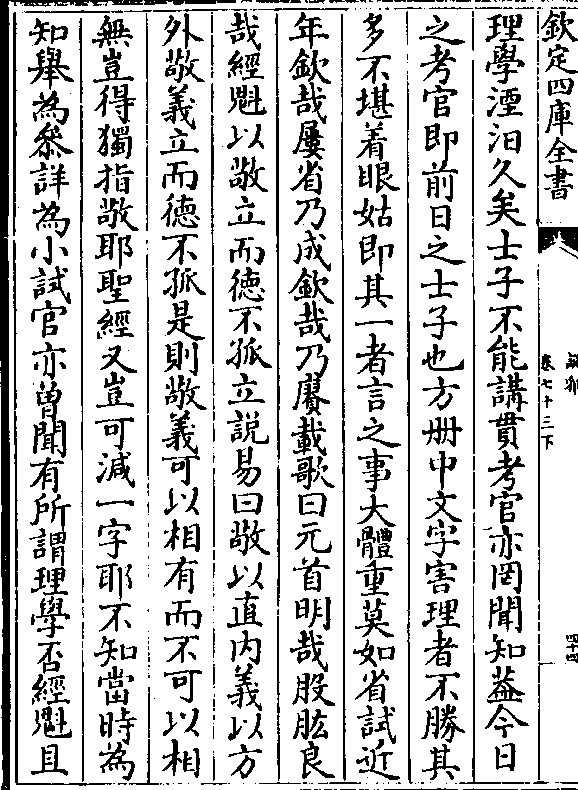 欽定四庫全書
說郛
卷七十三下
四十四
理學湮汩久矣士子不能講貫考官亦罔聞知葢今日
之考官即前日之士子也方册中文字害理者不勝其
多不堪着眼姑即其一者言之事大體重莫如省試近
年欽哉屢省乃成欽哉乃賡載歌曰元首明哉股肱良
哉經魁以敬立而德不孤立説易曰敬以直内義以方
外敬義立而德不孤是則敬義可以相有而不可以相
無豈得獨指敬耶聖經又豈可減一字耶不知當時為
知舉為叅詳為小試官亦曾聞有所謂理學否經魁且